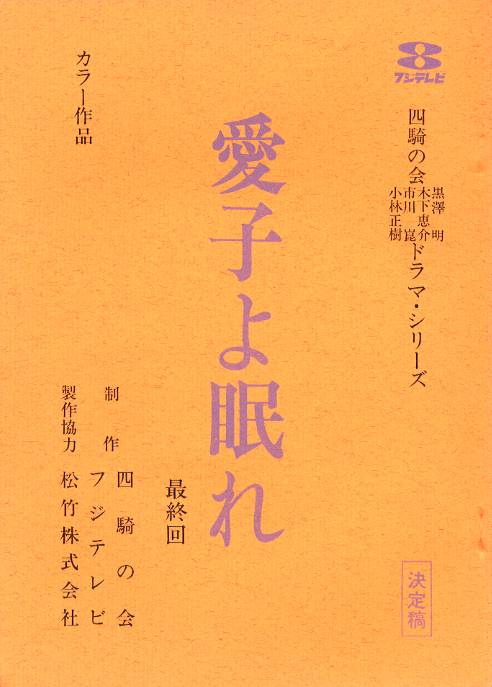 フジテレビ
四騎の会
黒澤 明
木下恵介
市川 崑
小林正樹
ドラマ・シリーズ
愛子よ眠れ
最終回
カラー作品
制作
四騎の会
フジテレビ
製作協力
松竹株式会社
決定稿